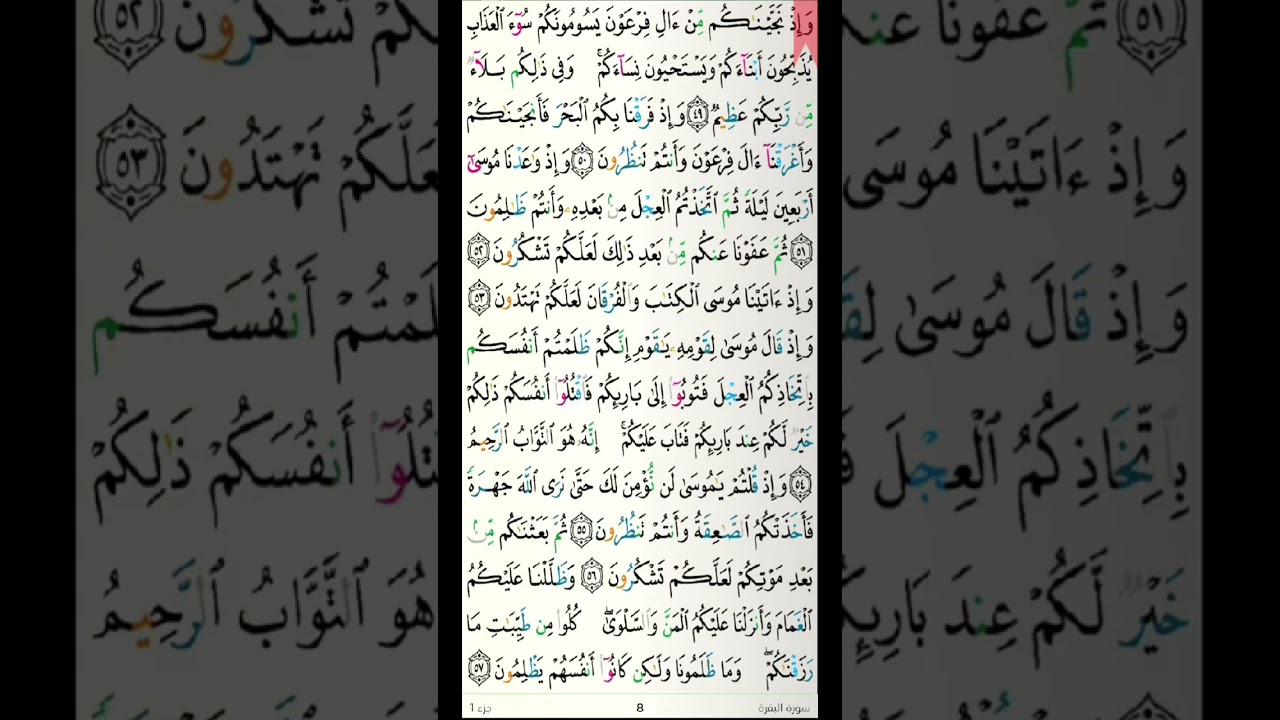 وَإِذْ نَجَّيْنَٰكُم مِّنْ ءَالِ فِرْعَوْنَ يَسُومُونَكُمْ سُوٓءَ ٱلْعَذَابِ
يُذَبِّحُونَ أَبْنَآءَكُمْ وَيَسْتَحْيُونَ نِسَآءَكُمْ ۚ وَفِى ذَٰلِكُم بَلَآءٌ
مِّن رَّبِّكُمْ عَظِيمٌ ٤٩ وَإِذْ فَرَقْنَا بِكُمُ ٱلْبَحْرَ فَأَنجَيْنَٰكُمْ
وَأَغْرَقْنَآ ءَالَ فِرْعَوْنَ وَأَنتُمْ تَنظُرُونَ ٥٠ وَإِذْ وَٰعَدْنَا مُوسَىٰٓ
أَرْبَعِينَ لَيْلَةً ثُمَّ ٱتَّخَذْتُمُ ٱلْعِجْلَ مِنۢ بَعْدِهِۦ وَأَنتُمْ ظَٰلِمُونَ
٥١ ثُمَّ عَفَوْنَا عَنكُم مِّنۢ بَعْدِ ذَٰلِكَ لَعَلَّكُمْ تَشْكُرُونَ ٥٢
وَإِذْ ءَاتَيْنَا مُوسَى ٱلْكِتَٰبَ وَٱلْفُرْقَانَ لَعَلَّكُمْ تَهْتَدُونَ ٥٣
وَإِذْ قَالَ مُوسَىٰ لِقَوْمِهِۦ يَٰقَوْمِ إِنَّكُمْ ظَلَمْتُمْ أَنفُسَكُم
بِٱتِّخَاذِكُمُ ٱلْعِجْلَ فَتُوبُوٓا۟ إِلَىٰ بَارِئِكُمْ فَٱقْتُلُوٓا۟ أَنفُسَكُمْ ذَٰلِكُمْ
خَيْرٌ لَّكُمْ عِندَ بَارِئِكُمْ فَتَابَ عَلَيْكُمْ ۚ إِنَّهُۥ هُوَ ٱلتَّوَّابُ ٱلرَّحِيمُ
٥٤ وَإِذْ قُلْتُمْ يَٰمُوسَىٰ لَن نُّؤْمِنَ لَكَ حَتَّىٰ نَرَى ٱللَّهَ جَهْرَةً
فَأَخَذَتْكُمُ ٱلصَّٰعِقَةُ وَأَنتُمْ تَنظُرُونَ ٥٥ ثُمَّ بَعَثْنَٰكُم مِّنۢ
بَعْدِ مَوْتِكُمْ لَعَلَّكُمْ تَشْكُرُونَ ٥٦ وَظَلَّلْنَا عَلَيْكُمُ
ٱلْغَمَامَ وَأَنزَلْنَا عَلَيْكُمُ ٱلْمَنَّ وَٱلسَّلْوَىٰ ۖ كُلُوا۟ مِن طَيِّبَٰتِ مَا
رَزَقْنَٰكُمْ ۖ وَمَا ظَلَمُونَا وَلَٰكِن كَانُوٓا۟ أَنفُسَهُمْ يَظْلِمُونَ ٥٧
سورة البقرة 8 جزء 1